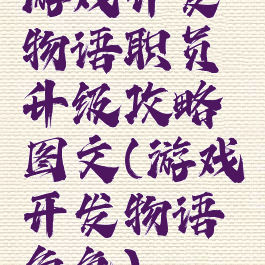 游戏开发
物语职员
升级攻略
图文(游戏
开发物语
角色)